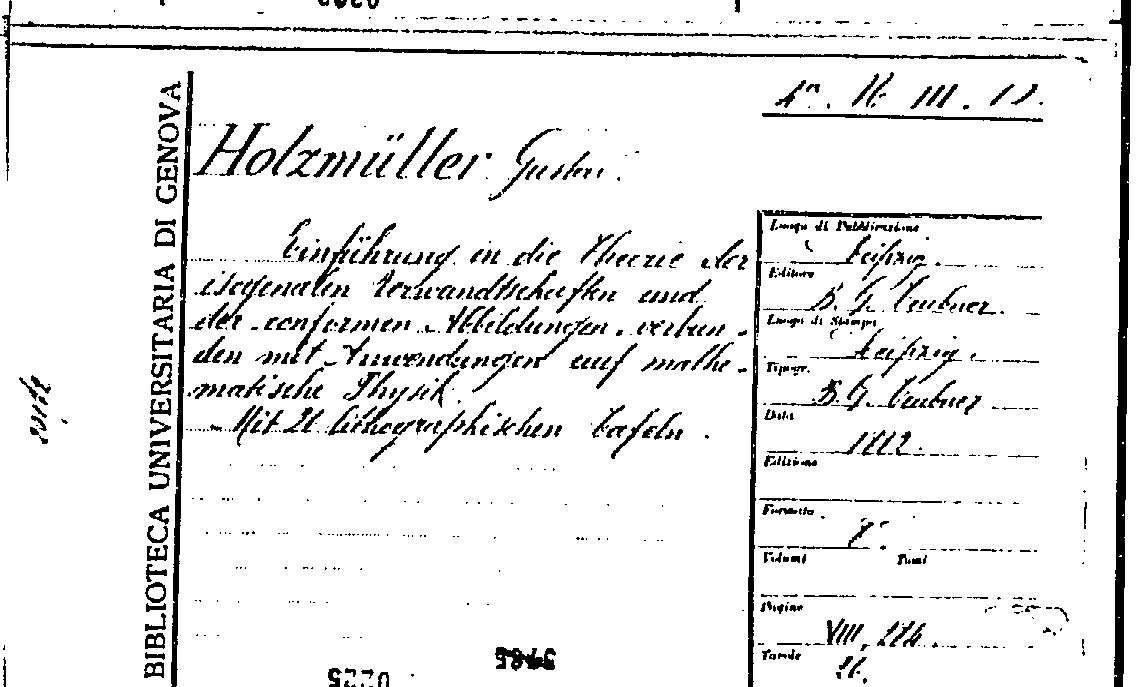 BIBLIOTECA UNIVERSITARIA DI GENOVA
Holzmüller Gustav.
Einführung in die Theorie der
isogonalen Verwandtschaften und
der conformen Abbildungen, verbun-
den mit Anwendungen auf mathe-
matische Physik.
Mit 26 lithographischen Tafeln.
Luogo di Pubblicazione
Leipzig.
Editore
B. G. Teubner.
Luogo di Stampa
Leipzig.
Tipogr.
B. G. Teubner
Data
1882.
Edizione
Formato
8°.
Volumi Tomi
Pagine
VIII, 284.
Tavole
26.